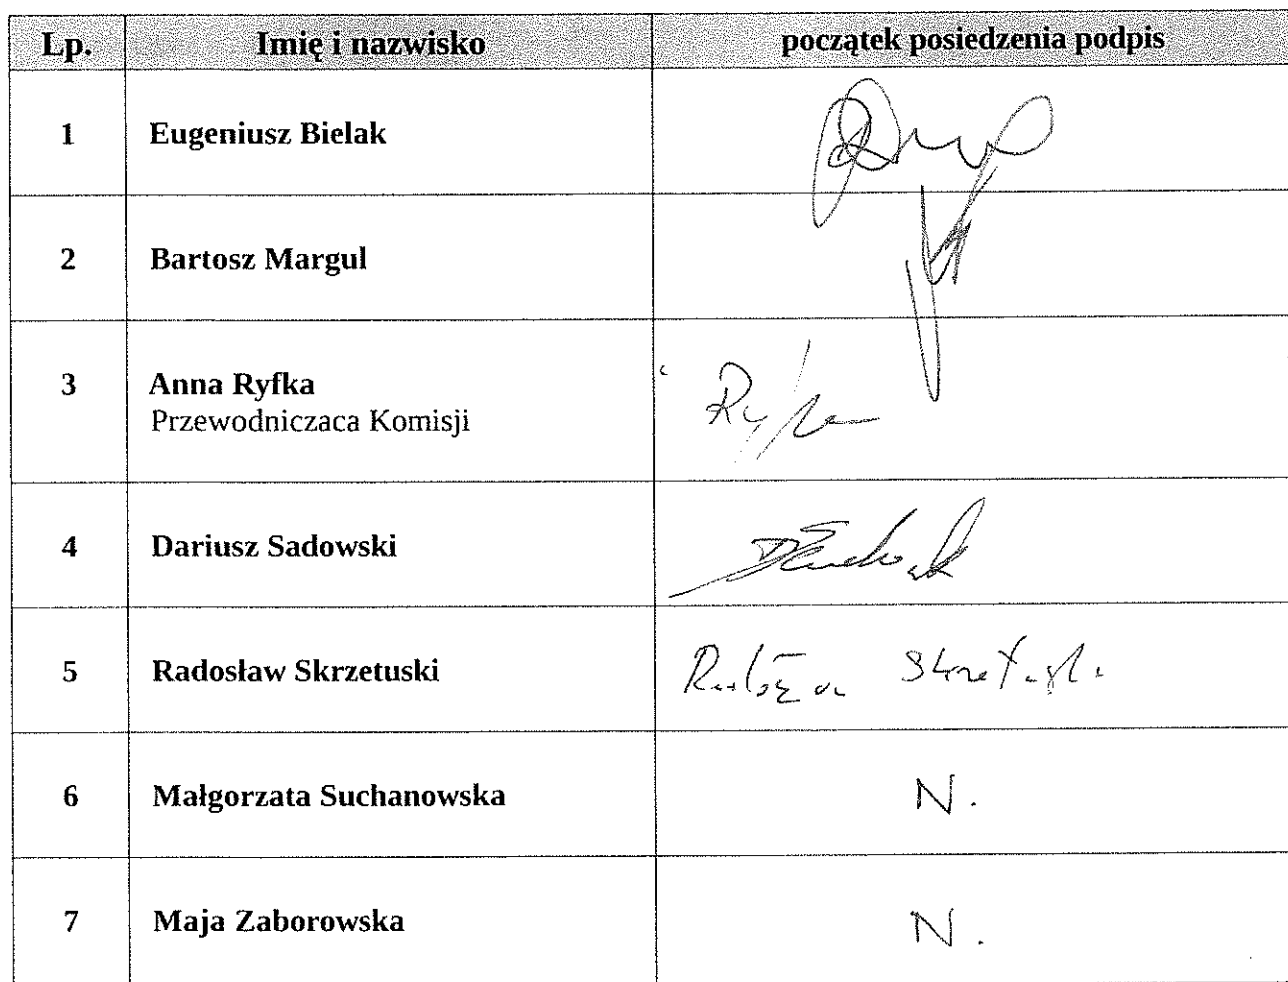 Lp. Imię i nazwisko początek posiedzenia podpis
1 Eugeniusz Bielak
2 Bartosz Margul
3 Anna Ryfka
Przewodniczaca Komisji
4 Dariusz Sadowski
5 Radosław Skrzetuski
6 Małgorzata Suchanowska N.
7 Maja Zaborowska N.